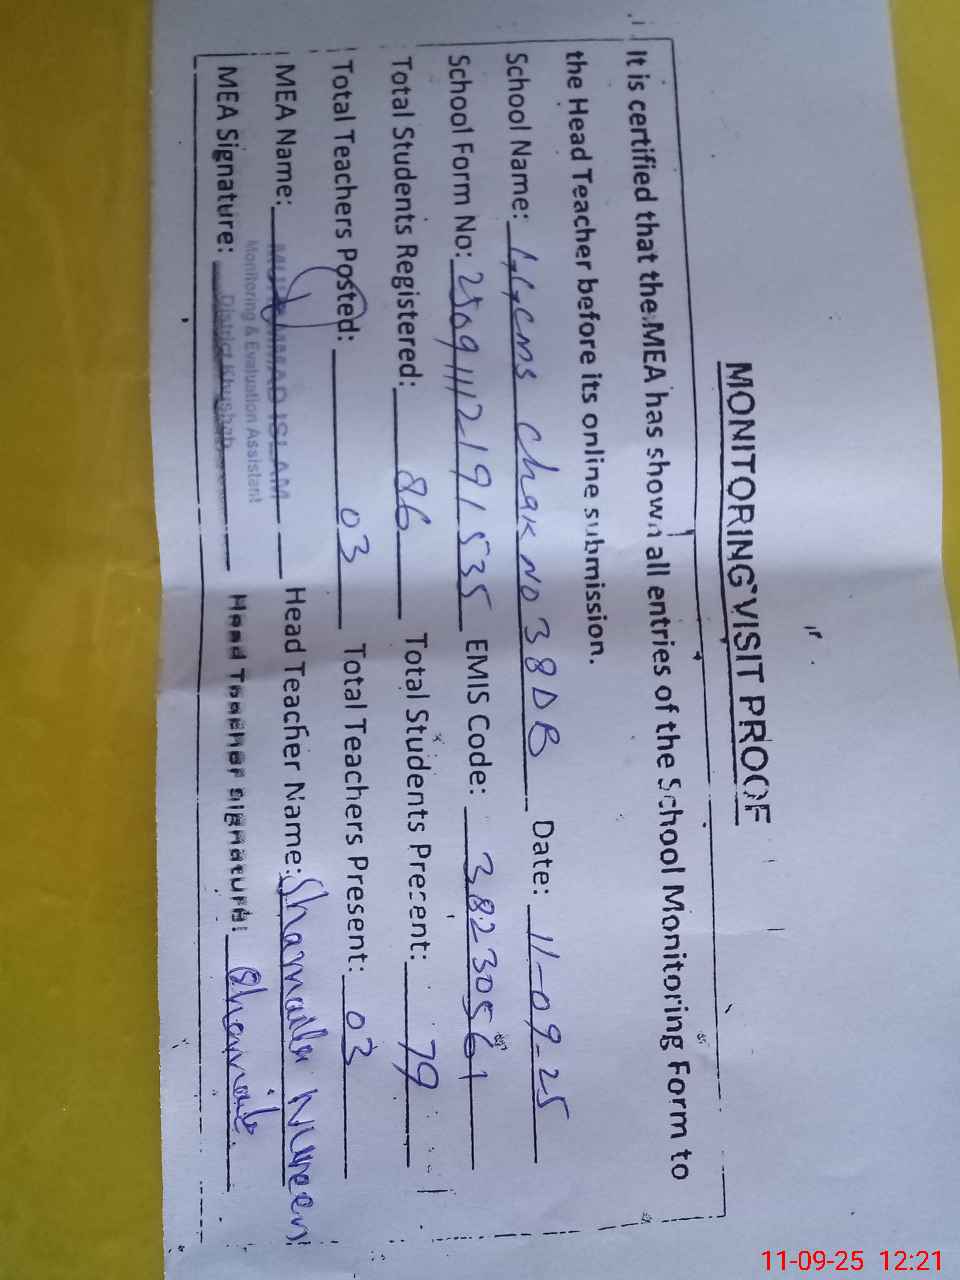 MONITORING VISIT PROOF
It is certified that the MEA has shown all entries of the School Monitoring Form to
the Head Teacher before its online submission.
School Name: G.G.CMS Chak NO 38DB Date: 11-09-25
School Form No: 25091112191535 EMIS Code: 38230561
Total Students Registered: 86 Total Students Present: 79
Total Teachers Posted: 03 Total Teachers Present: 03
MEA Name: MUHAMMAD ISLAM Head Teacher Name: Shamaila Nureen
Monitoring & Evaluation Assistant
MEA Signature: District Khushab Head Teacher Signature: Shamaila
11-09-25 12:21